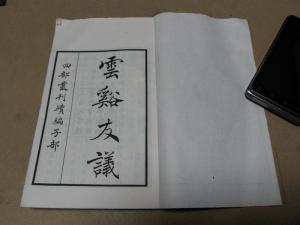 雲谿友議
四部叢刊續編子部